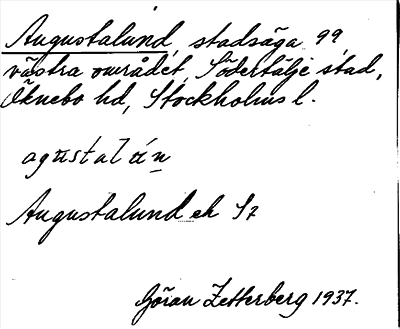 Augustalund, stadsäga 99,
västra området, Södertälje stad,
Öknebo hd, Stockholms l.
agustalún
Augustalund ek S7
Göran Zetterberg 1937.